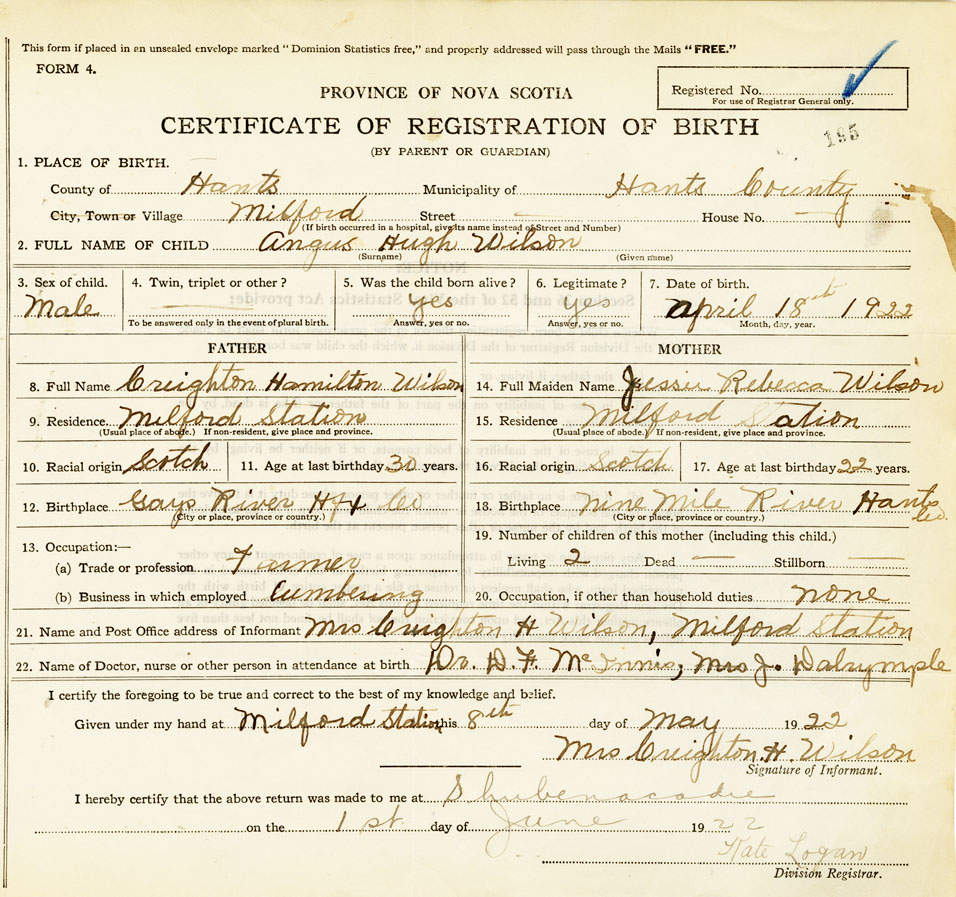 This form if placed in an unsealed envelope marked "Dominion Statistics free," and properly addressed will pass through the Mails "FREE."
FORM 4.
PROVINCE OF NOVA SCOTIA
Registered No.
For use of Registrar General only.
CERTIFICATE OF REGISTRATION OF BIRTH
195
(BY PARENT OR GUARDIAN)
1. PLACE OF BIRTH.
County of Hants Municipality of Hants County
City, Town or Village Milford Street — House No. —
(If birth occurred in a hospital, give its name instead of Street and Number)
2. FULL NAME OF CHILD Angus Hugh Wilson
(Surname) (Given name)
3. Sex of child. 4. Twin, triplet or other? 5. Was the child born alive? 6. Legitimate? 7. Date of birth.
Male — yes yes April 18th 1922
To be answered only in the event of plural birth. Answer, yes or no. Answer, yes or no. Month, day, year.
FATHER MOTHER
8. Full Name Creighton Hamilton Wilson 14. Full Maiden Name Jessie Rebecca Wilson
9. Residence Milford Station 15. Residence Milford Station
(Usual place of abode.) If non-resident, give place and province. (Usual place of abode.) If non-resident, give place and province.
10. Racial origin Scotch 11. Age at last birthday 30 years. 16. Racial origin Scotch 17. Age at last birthday 22 years.
12. Birthplace Gays River Hfx Co 18. Birthplace Nine Mile River Hants Co.
(City or place, province or country.) (City or place, province or country.)
13. Occupation:— 19. Number of children of this mother (including this child.)
(a) Trade or profession Farmer Living 2 Dead — Stillborn —
(b) Business in which employed Lumbering 20. Occupation, if other than household duties none
21. Name and Post Office address of Informant Mrs Creighton H Wilson, Milford Station
22. Name of Doctor, nurse or other person in attendance at birth Dr. D. F. McInnis, Mrs J. Dalrymple
I certify the foregoing to be true and correct to the best of my knowledge and belief.
Given under my hand at Milford Station this 8th day of May 1922
Mrs Creighton H. Wilson
Signature of Informant.
I hereby certify that the above return was made to me at Shubenacadie
on the 1st day of June 1922
Kate Logan
Division Registrar.